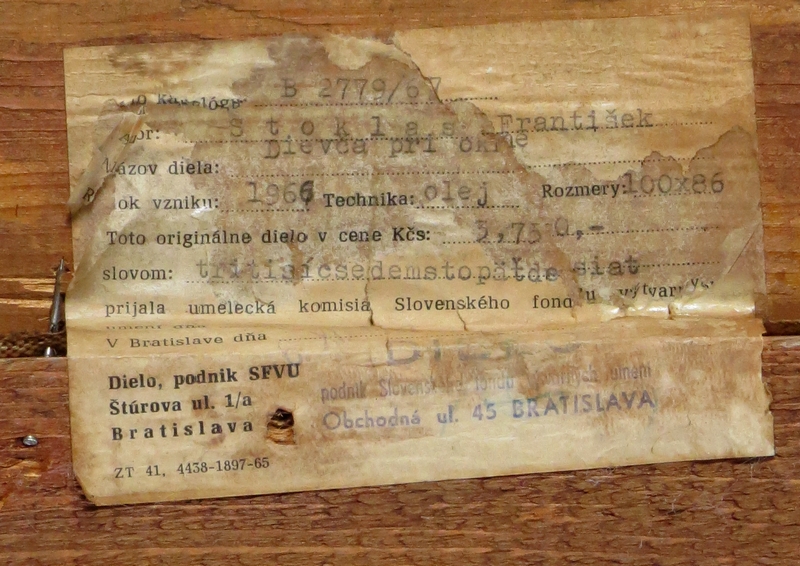 B 2779/67
Stoklas František
Dievča pri okne
Názov diela:
Rok vzniku: 1966 Technika: olej Rozmery: 100x86
Toto originálne dielo v cene Kčs: 3,750,-
slovom: tritisícsedemstopäťdesiat
prijala umelecká komisia Slovenského fondu výtvar.
umení dňa
V Bratislave dňa
DIELO
Dielo, podnik SFVU
podnik Slovenského fondu výtvarných umení
Štúrova ul. 1/a
Obchodná ul. 45 BRATISLAVA
Bratislava
ZT 41, 4438-1897-65